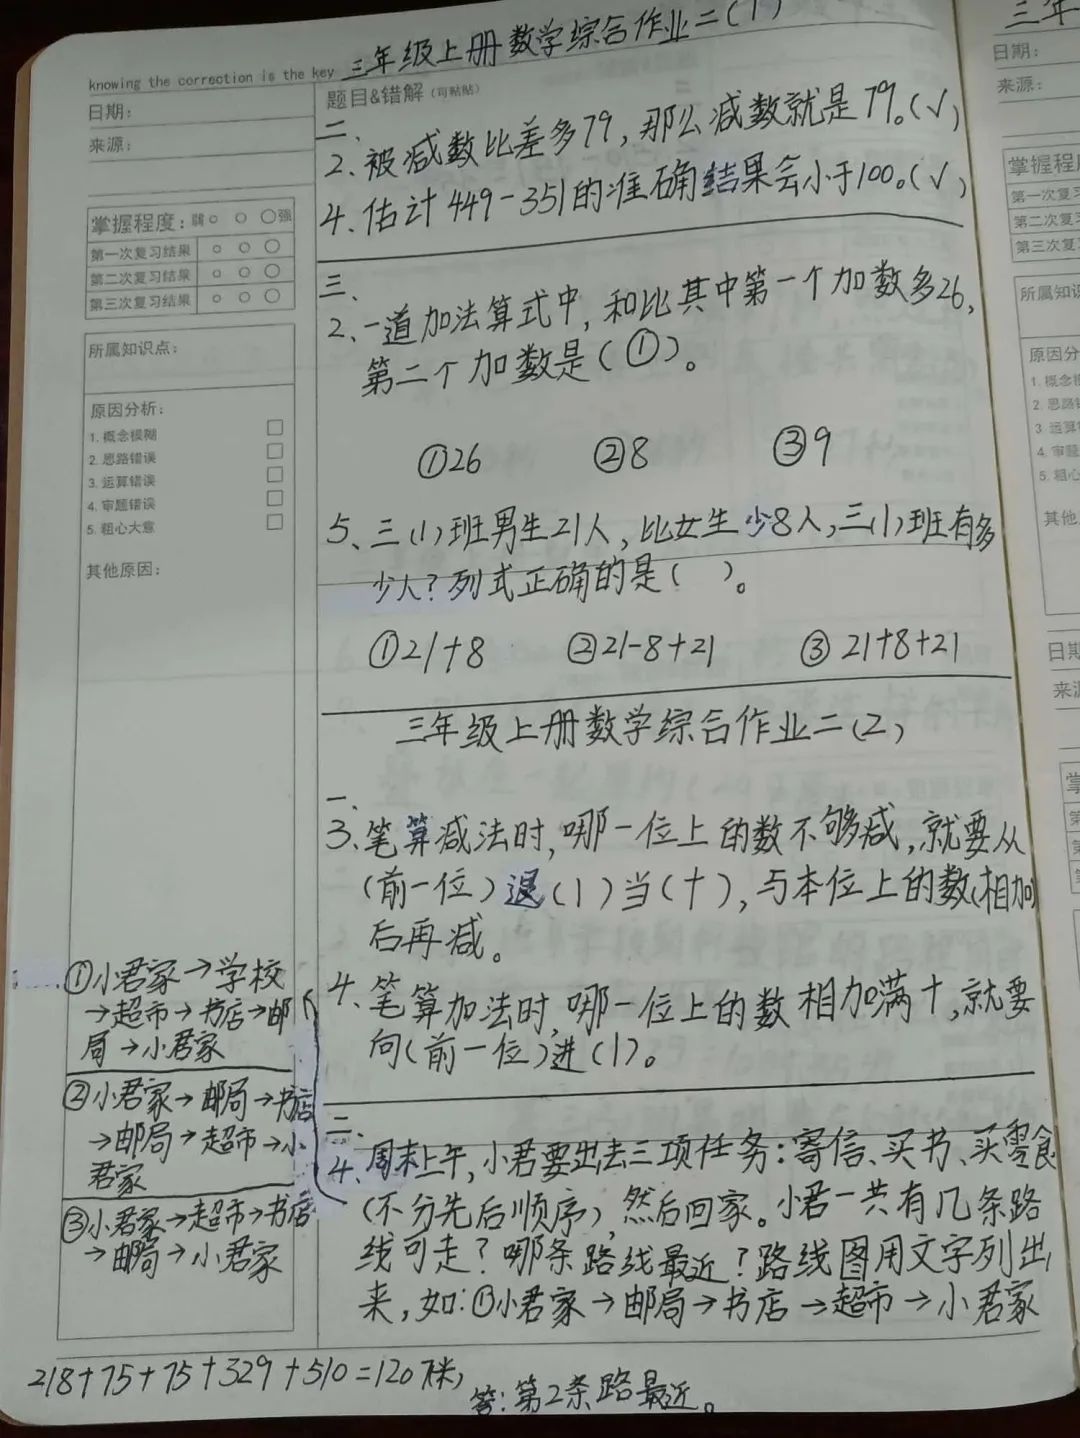 三年级上册数学综合作业二(1)
knowing the correction is the key
日期：
题目&错解（可粘贴）
来源：
二、
2、被减数比差多79，那么减数就是79。(√)
4、估计449-351的准确结果会小于100。(√)
掌握程度：弱 强
第一次复习结果
第二次复习结果
第三次复习结果
三、
2、一道加法算式中，和比其中第一个加数多26，
第二个加数是(①)。
①26 ②8 ③9
所属知识点：
原因分析：
1. 概念模糊
2. 思路错误
3. 运算错误
4. 审题错误
5. 粗心大意
其他原因：
5、三(1)班男生21人，比女生少8人，三(1)班有多
少人？列式正确的是( )。
①21+8 ②21-8+21 ③21+8+21
三年级上册数学综合作业二(2)
一、
3、笔算减法时，哪一位上的数不够减，就要从
(前一位)退(1)当(十)，与本位上的数(相加)
后再减。
4、笔算加法时，哪一位上的数相加满十，就要
向(前一位)进(1)。
二、
4、周末上午，小君要出去三项任务：寄信、买书、买零食
(不分先后顺序)，然后回家。小君一共有几条路
线可走？哪条路线最近？路线图用文字列出
来，如：①小君家→邮局→书店→超市→小君家
①小君家→学校
→超市→书店→邮
局→小君家
②小君家→邮局→书店
→邮局→超市→小
君家
③小君家→超市→书店
→邮局→小君家
218+75+75+329+510=1207米，
答：第2条路最近。
三年
日期：
来源：
掌握程度
第一次复习
第二次复习
第三次复习
所属知识
原因分
1. 概念模
2. 思路错
3. 运算
4. 审题
5. 粗心
其他
日期
来源